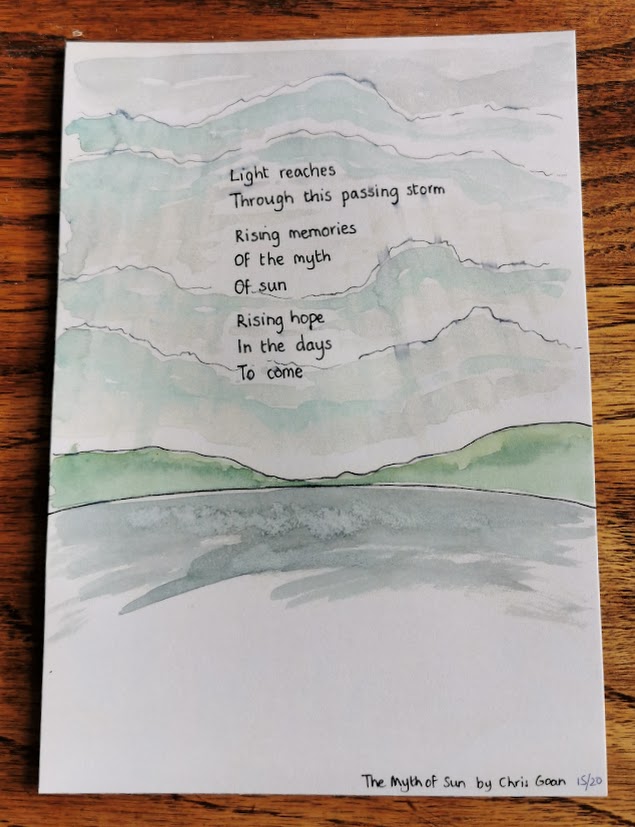 Light reaches
Through this passing storm
Rising memories
Of the myth
Of sun
Rising hope
In the days
To come
The Myth of Sun by Chris Goan 15/20